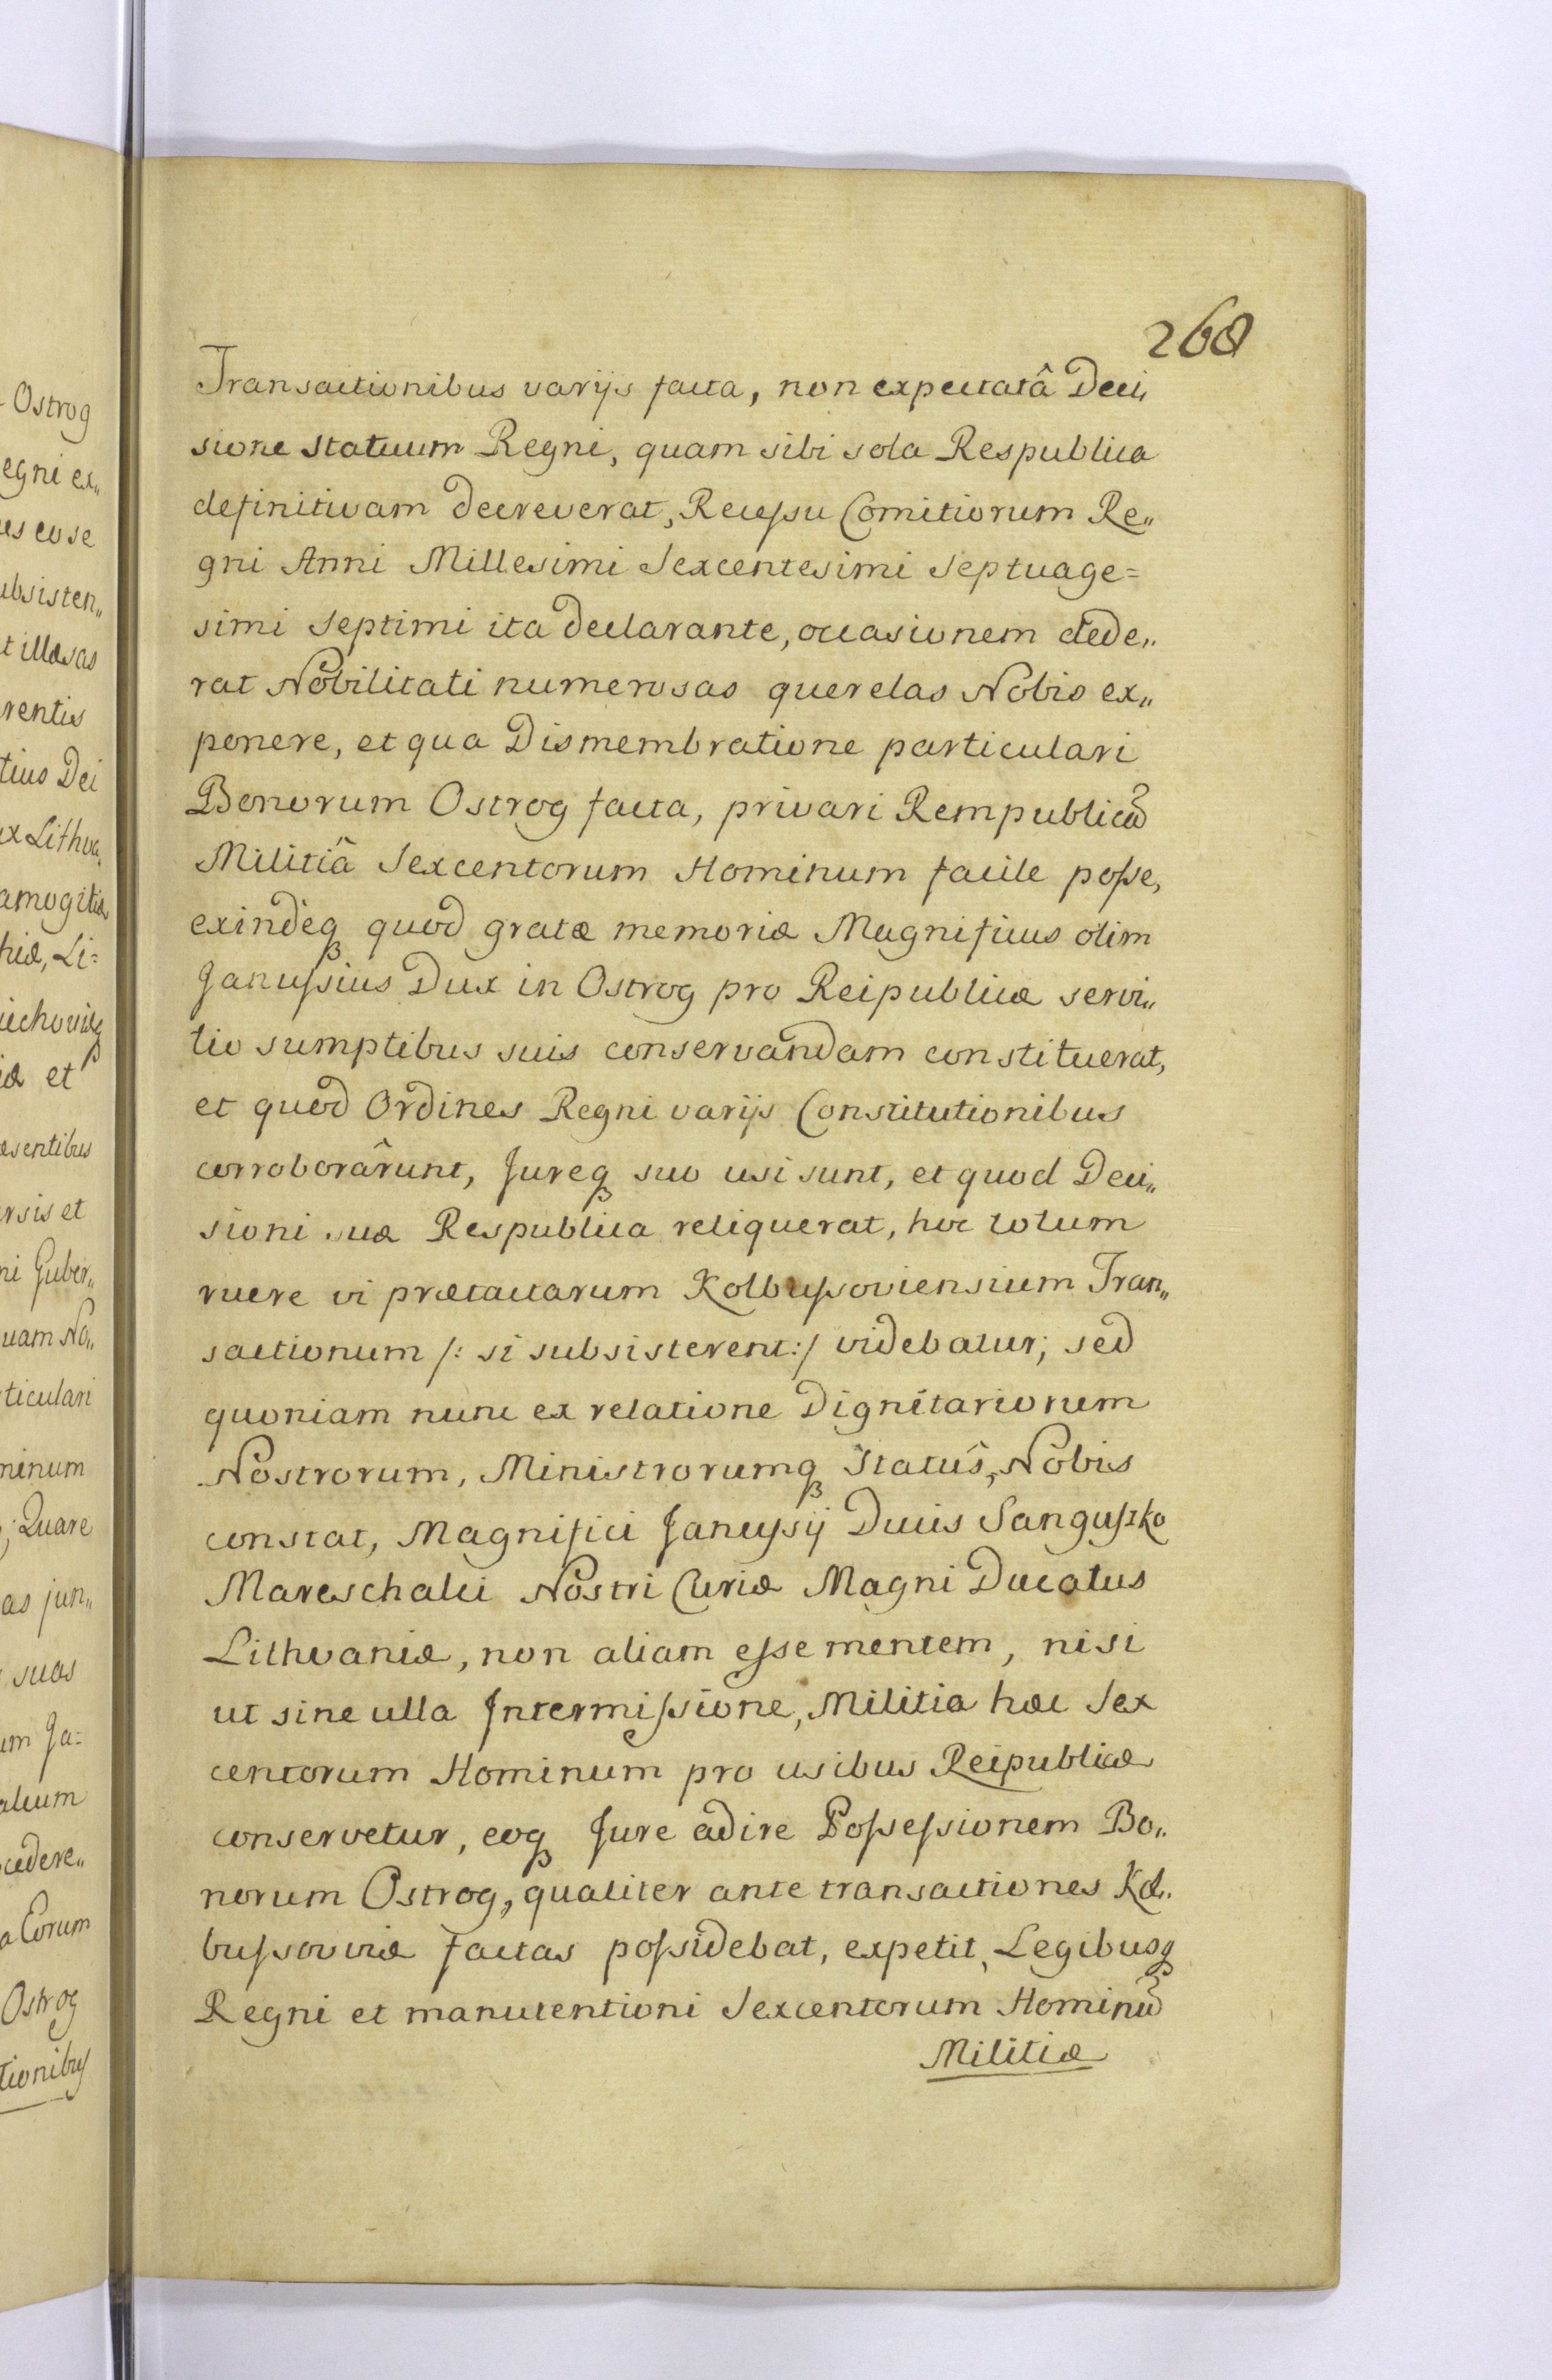 268
Transactionibus varijs facta, non expectatâ Deci„
sione Statuum Regni, quam sibi sola Respublica
definitivam decreverat, Recessu Comitiorum Re„
gni Anni Millesimi Sexcentesimi Septuage=
simi Septimi ita declarante, occasionem dede„
rat Nobilitati numerosas querelas Nobis ex„
ponere, et qua Dismembratione particulari
Bonorum Ostrog facta, privari Rempublicã
Militiâ Sexcentorum Hominum facile posse,
exindeq quod gratæ memoriæ Magnificus olim
Janussius Dux in Ostrog pro Reipublicæ servi„
tio sumptibus suis conservandam constituerat,
et quod Ordines Regni varijs Constitutionibus
corroborârunt, Jureq suo usi sunt, et quod Deci„
sioni suæ Respublica reliquerat, hoc totum
ruere vi prætactarum Kolbussoviensium Tran„
sactionum /: si subsisterent:/ videbatur; sed
quoniam nunc ex relatione Dignitariorum
Nostrorum, Ministrorumq Statûs, Nobis
constat, Magnifici Janussij Ducis Sanguszko
Mareschalci Nostri Curiæ Magni Ducatus
Lithvaniæ, non aliam esse mentem, nisi
ut sine ulla Intermissione, Militia hæc Sex
centorum Hominum pro usibus Reipublicæ
conservetur, eoq Jure adire Possessionem Bo„
norum Ostrog, qualiter ante transactiones Kol„
bussoviæ factas possidebat, expetit, Legibusq
Regni et manutentioni Sexcentorum Hominũ
Militiæ